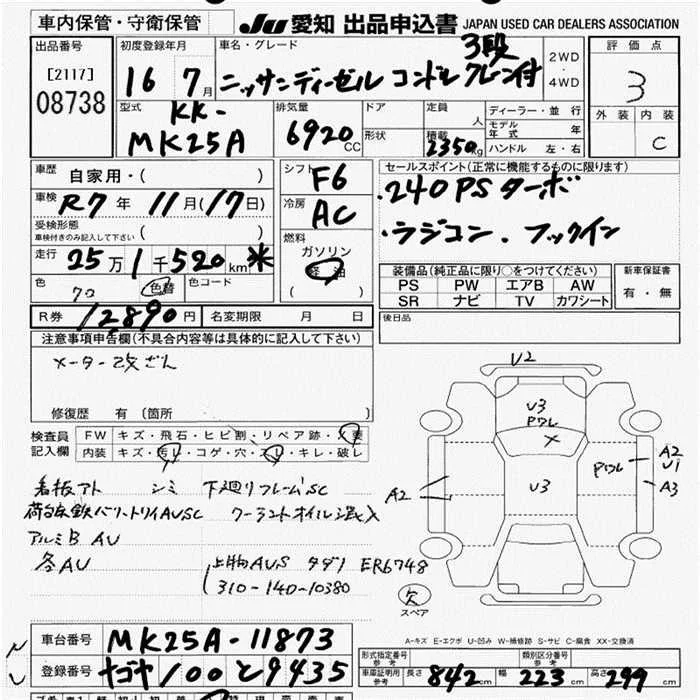 車内保管・守衛保管
JU 愛知 出品申込書 JAPAN USED CAR DEALERS ASSOCIATION
出品番号
[2117]
08738
初度登録年月
16 7月
車名・グレード
3段
ニッサンディーゼル コンドル クレーン付
2WD
・
4WD
評価点
3
外装 内装
C
型式
KK-
MK25A
排気量
6920 CC
ドア
形状
定員
人
積載
2350 kg
ディーラー・並行
モデル年式 年
ハンドル 左・右
車歴
自家用・( )
車検
R7年 11月(17日)
受検形態
車検付きのみ記入して下さい ( )
走行
25万1千520km ※
色
色替
色コード
シフト
F6
冷房
AC
燃料
ガソリン
軽油
( )
セールスポイント(正常に機能するものに限ります)
・240PSターボ
・ラジコン・フックイン
装備品(純正品に限り○をつけてください)
PS PW エアB AW
SR ナビ TV カワシート
新車保証書
有・無
後日品
R券 12890円 名変期限 月 日
注意事項申告欄(不具合内容等は具体的に記入して下さい)
メーター改ざん
修復歴 有 〔箇所 〕
検査員
記入欄
FW キズ・飛石・ヒビ割・リペア跡・X要
内装 キズ・汚レ・コゲ・穴・スレ・キレ・破レ
看板アト シミ 下廻りフレームSC
荷台床鉄バリ・トリイAUSC クーラントオイル混入
アルミB AU
各AU
上物AUS タダノ ER6748
(310-140-10380
U2
U3
Pワレ
X
U3
A2
Pワレ
A2
U1
A3
欠
スペア
A-キズ E-エクボ U-凹み W-補修跡 S-サビ C-腐食 XX-交換済
車台番号 MK25A-11873
登録番号 ナゴヤ100と9435
型式指定番号
参考
類別区分番号
参考
車庫証明用
参考
長さ 842cm 幅 223cm 高さ 299cm